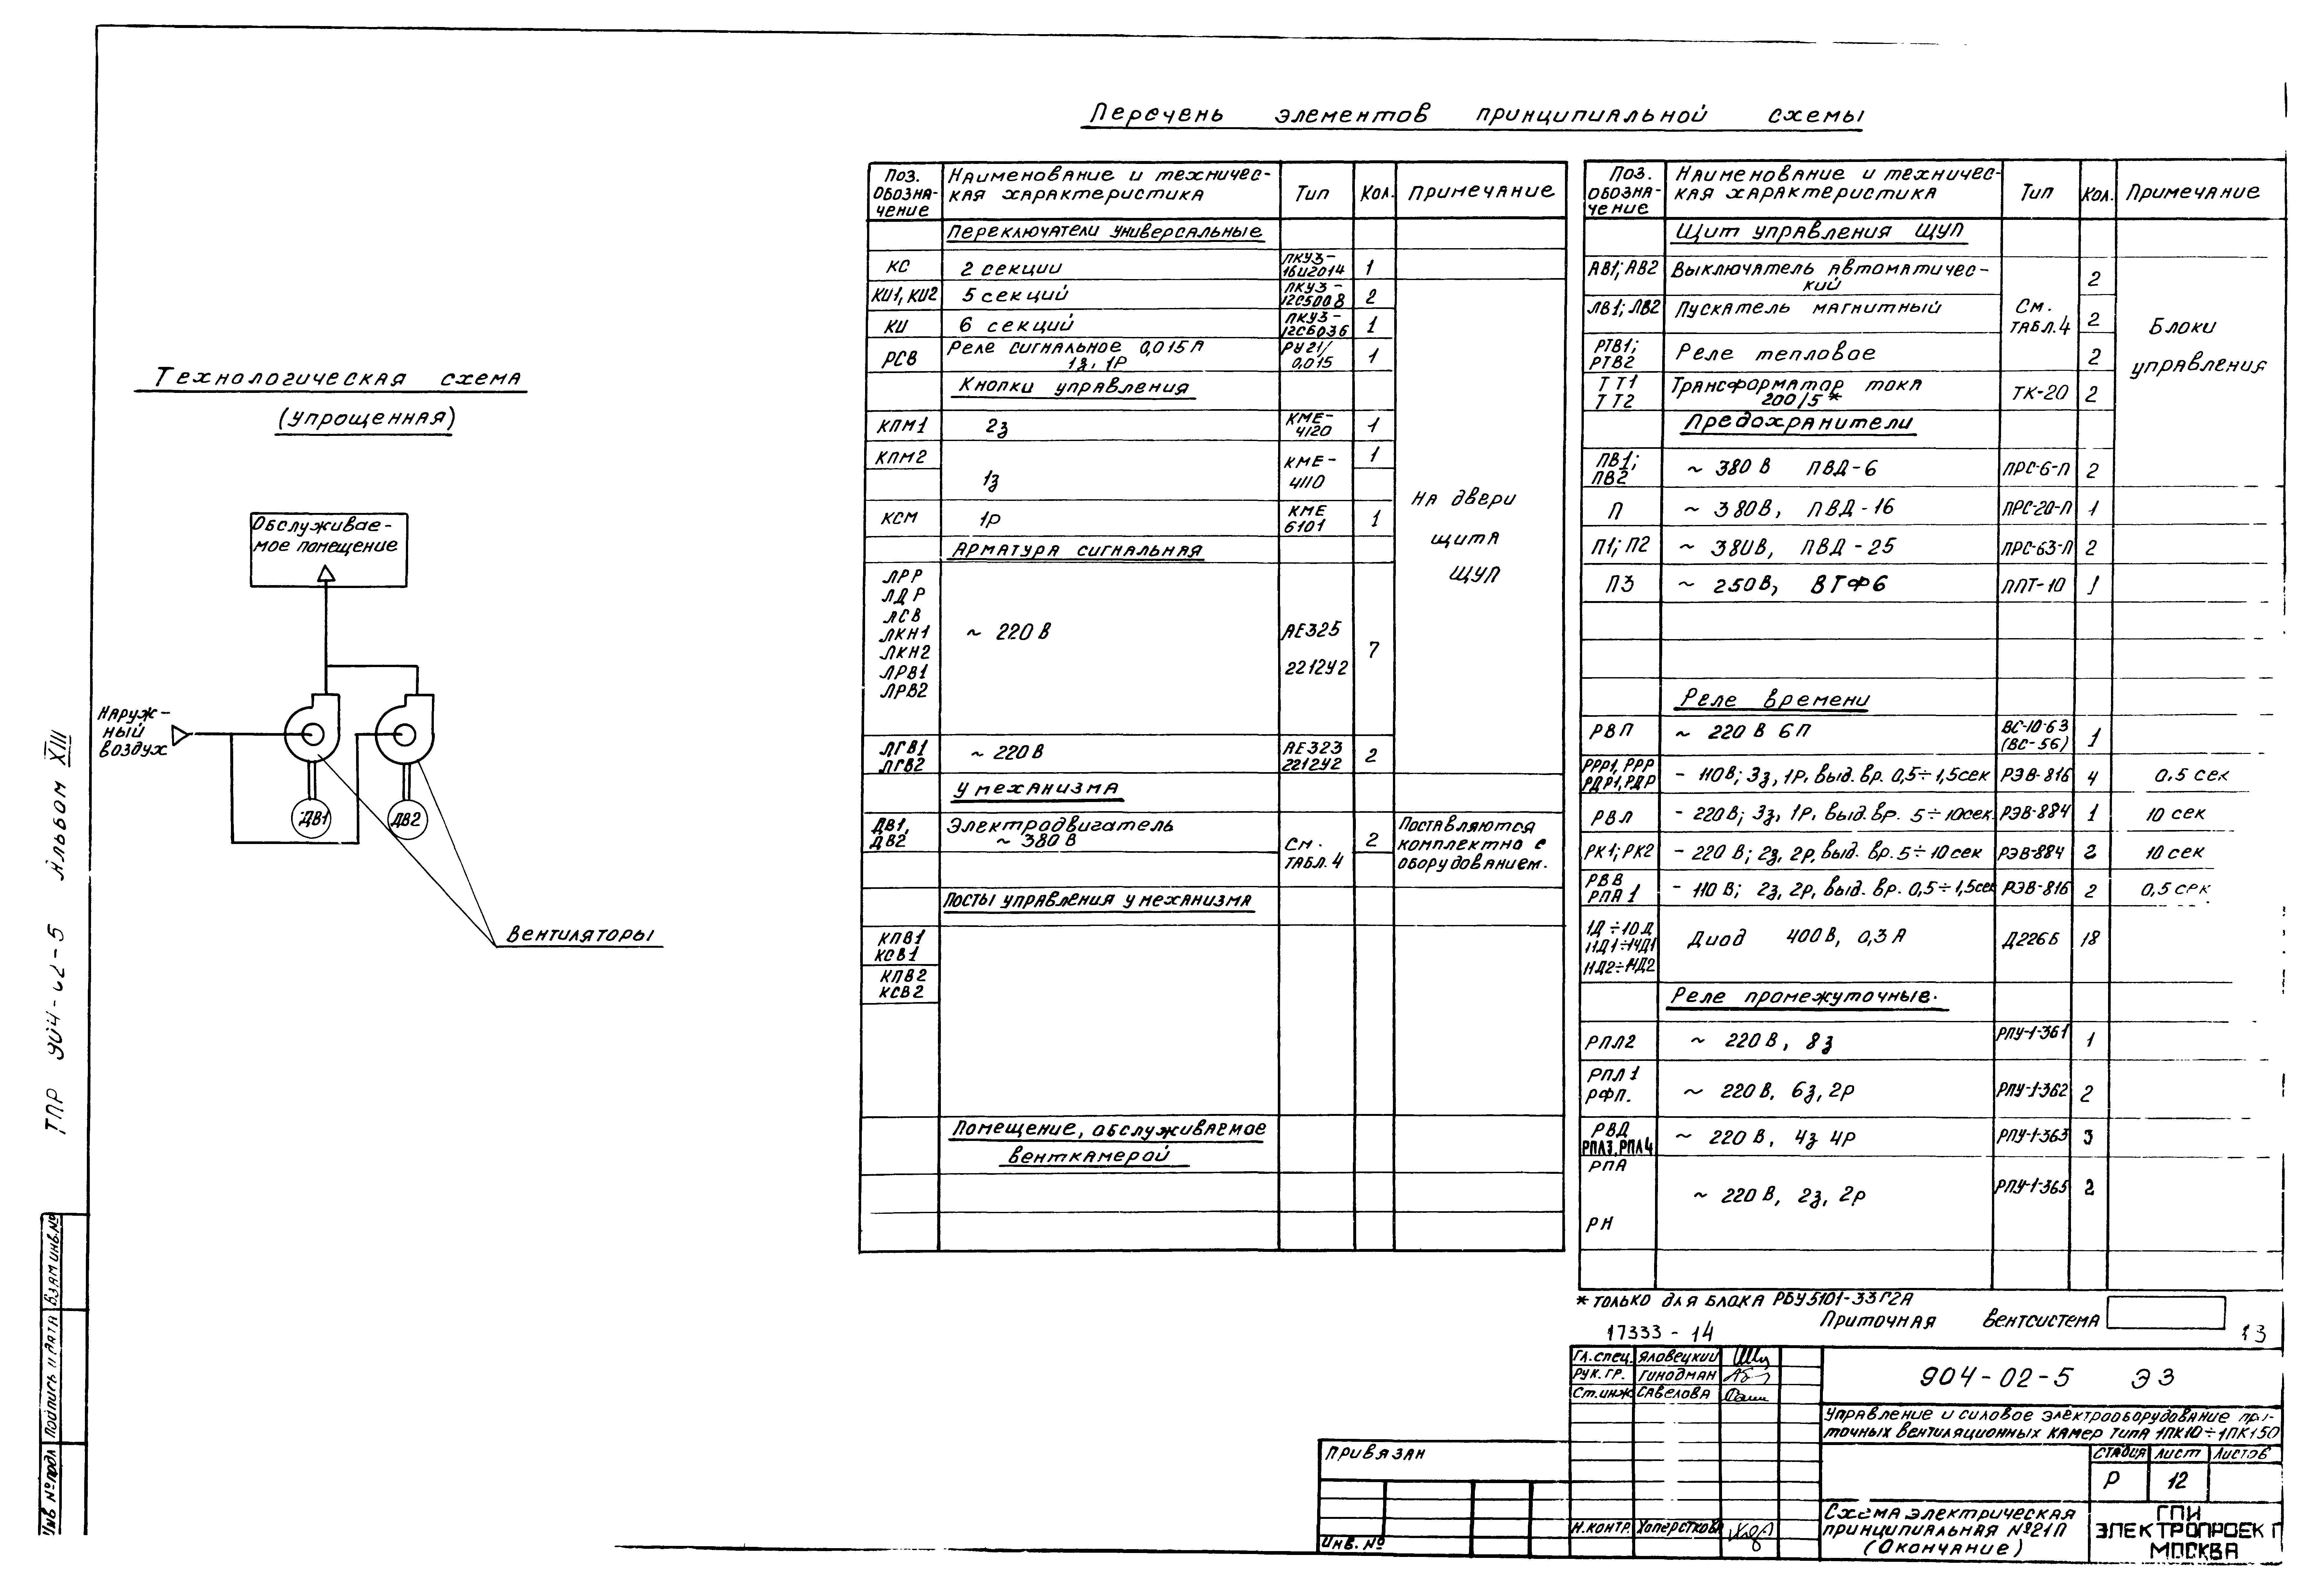 Перечень элементов принципиальной схемы
Технологическая схема
(упрощенная)
Обслуживае-
мое помещение
Наруж-
ный
воздух
ДВ1
ДВ2
Вентиляторы
ТПР 904-02-5 Альбом XIII
Взам инв.№
Подпись и дата
Инв № подл
Поз. обозна-чение | Наименование и техничес-кая характеристика | Тип | Кол. | Примечание
Переключатели универсальные
КС 2 секции ПКУ3-16И2014 1
КИ1, КИ2 5 секций ПКУ3-12С5008 2
КИ 6 секций ПКУ3-12С6036 1
РСВ Реле сигнальное 0,015А 1з, 1р РУ21/0,015 1
Кнопки управления
КПМ1 2з КМЕ-4120 1
КПМ2 1з КМЕ-4110 1
КСМ 1р КМЕ 6101 1
На двери
щита
ЩУП
Арматура сигнальная
ЛРР
ЛДР
ЛСВ
ЛКН1
ЛКН2
ЛРВ1
ЛРВ2
~ 220 В АЕ325 2212У2 7
ЛГВ1
ЛГВ2
~ 220 В АЕ323 2212У2 2
У механизма
ДВ1, ДВ2 Электродвигатель ~ 380 В См. табл. 4 2
Поставляются
комплектно с
оборудованием.
Посты управления у механизма
КПВ1
КСВ1
КПВ2
КСВ2
Помещение, обслуживаемое
венткамерой
Поз. обозна-чение | Наименование и техничес-кая характеристика | Тип | Кол. | Примечание
Щит управления ЩУП
АВ1; АВ2 Выключатель автоматичес-кий 2
ЛВ1; ЛВ2 Пускатель магнитный См. табл.4 2
РТВ1; РТВ2 Реле тепловое 2
ТТ1 ТТ2 Трансформатор тока 200/5* ТК-20 2
Блоки
управления
Предохранители
ПВ1; ПВ2 ~ 380 В ПВД-6 ПРС-6-П 2
П ~ 380В, ПВД-16 ПРС-20-П 1
П1; П2 ~ 380В, ПВД-25 ПРС-63-П 2
П3 ~ 250В, ВТФ6 ППТ-10 1
Реле времени
РВП ~ 220 В 6П ВС-10-63 (ВС-56) 1
РРР1, РРР РДР1, РДР - 110В; 3з, 1р, выд. вр. 0,5÷1,5сек РЭВ-816 4 0,5 сек
РВЛ - 220В; 3з, 1р, выд. вр. 5÷10сек. РЭВ-884 1 10 сек
РК1; РК2 - 220 В; 2з, 2р, выд. вр. 5÷10 сек РЭВ-884 2 10 сек
РВВ РПА1 - 110 В; 2з, 2р, выд. вр. 0,5÷1,5сек РЭВ-816 2 0,5 сек
1Д÷10Д 11Д1÷14Д1 Диод 400 В, 0,3 А Д226Б 18
Реле промежуточные.
РПЛ2 ~ 220 В, 8з РПУ-1-361 1
РПЛ1 РФП. ~ 220 В, 6з, 2р РПУ-1-362 2
РВД РПЛ3, РПЛ4 ~ 220 В, 4з 4р РПУ-1-363 3
РПА
~ 220 В, 2з, 2р РПУ-1-365 2
РН
* только для блока РБУ5101-33Г2А
Приточная вентсистема
17333 - 14
13
Гл.спец. Яловецкий
Рук. гр. Гинодман
Ст.инж Савелова
Н.контр.
904-02-5 ЭЗ
Управление и силовое электрооборудование при-
точных вентиляционных камер типа 1ПК10÷1ПК150
Стадия Лист Листов
Р 12
Схема электрическая
принципиальная №21П
(Окончание)
ГПИ
ЭЛЕКТРОПРОЕКТ
МОСКВА
Привязан
Инв. №